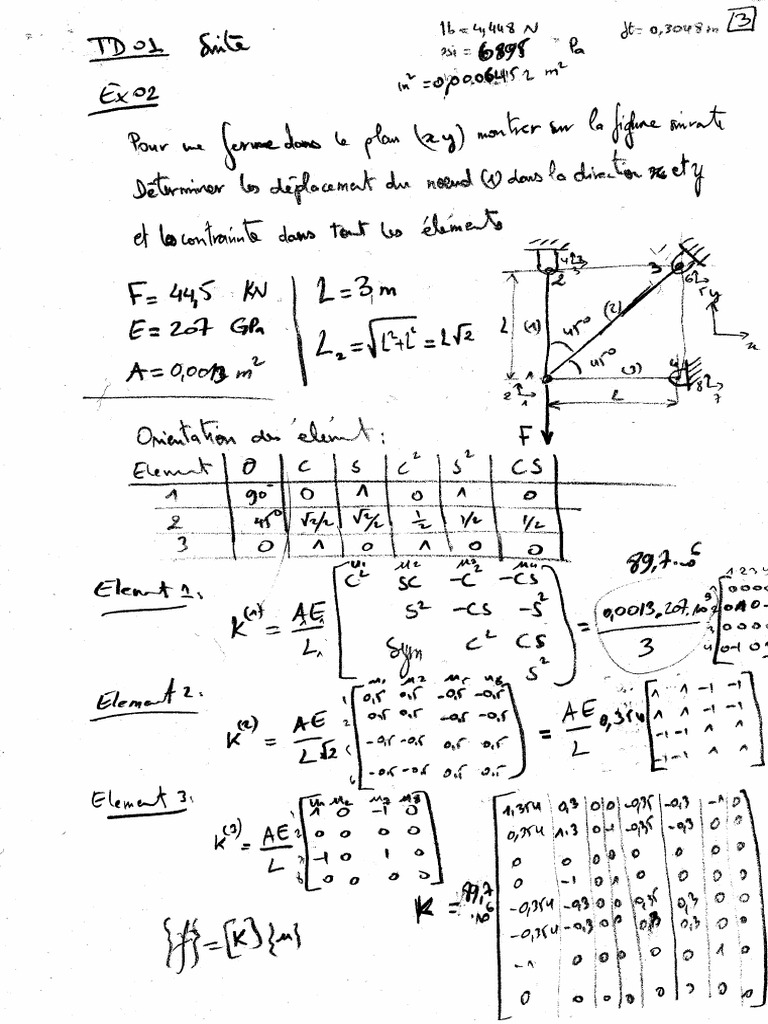 1b = 4,448 N
ft = 0,3048 m
3
TD 01 Suite
psi = 6895 Pa
in² = 0,00064152 m²
Ex 02
Pour une ferme dans le plan (xy) montrer sur la figure suivate
Déterminer les déplacement du noeud (1) dans la direction x et y
et les contrainte dans tout les éléments
F = 44,5 KN
L = 3 m
E = 207 GPa
L₂ = √L²+L² = L√2
A = 0,0013 m²
L (1) (2) (3) 45° 45° 1 2 3 4 L F
y x
Orientation des élément :
Element θ C S C² S² CS
1 90° 0 1 0 1 0
2 45° √2/2 √2/2 1/2 1/2 1/2
3 0 1 0 1 0 0
89,7.10⁶
Element 1 :
u₁ u₂ u₃ u₄
K⁽¹⁾ = A₁E₁/L₁ [C² SC -C² -CS
S² -CS -S²
Sym C² CS
S²] = 0,0013.207.10⁹/3
Element 2 :
u₁ u₂ u₅ u₆
K⁽²⁾ = AE/L√2 [0,5 0,5 -0,5 -0,5
0,5 0,5 -0,5 -0,5
-0,5 -0,5 0,5 0,5
-0,5 -0,5 0,5 0,5] = AE/L 0,354 [1 1 -1 -1
1 1 -1 -1
-1 -1 1 1
-1 -1 1 1]
Element 3 :
u₁ u₂ u₇ u₈
K⁽³⁾ = AE/L [1 0 -1 0
0 0 0 0
-1 0 1 0
0 0 0 0]
K = 89,7.10⁶ [1,354 0,3 0 0 -0,35 -0,3 -1 0
0,354 1.3 0 -1 -0,35 -0,3 0 0
0 0 0 0 0 0 0 0
0 -1 0 1 0 0 0 0
-0,354 -0,3 0 0 0,35 0,3 0 0
-0,354 -0,3 0 0 0,3 0,3 0 0
-1 0 0 0 0 0 1 0
0 0 0 0 0 0 0 0]
{f} = [K]{u}